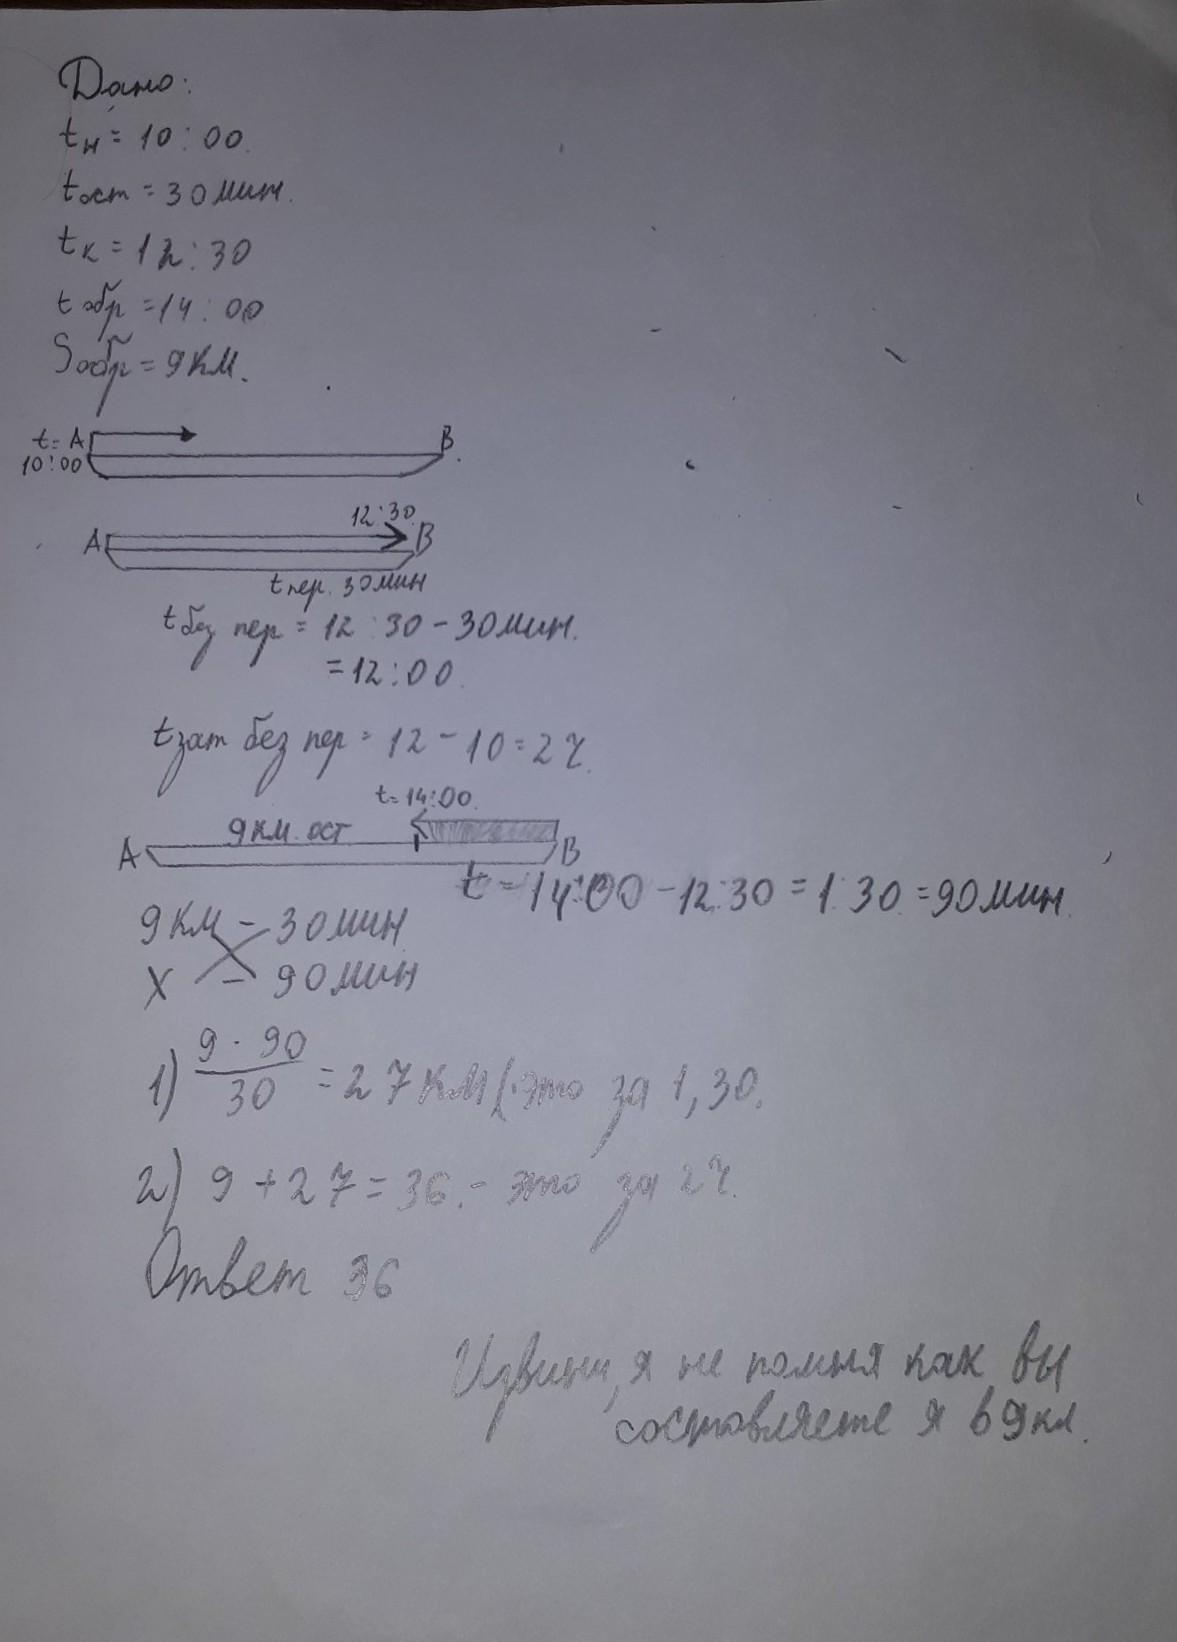 Дано:
tн = 10:00.
tост = 30 мин.
tк = 12:30
t обр = 14:00
Sобр = 9 км.
t= A
10:00
B
12:30
A
B
t пер. 30 мин
t без пер = 12:30 - 30 мин.
= 12:00.
t зат без пер = 12 - 10 = 2 ч.
t= 14:00.
9 км. ост
A
B
t = 14:00 - 12:30 = 1:30 = 90 мин.
9 км - 30 мин
X - 90 мин
1) 9 · 90 / 30 = 27 км (это за 1,30.
2) 9 + 27 = 36. - это за 2 ч.
Ответ 36
Извини, я не помня как вы
составляете я в 9 кл.